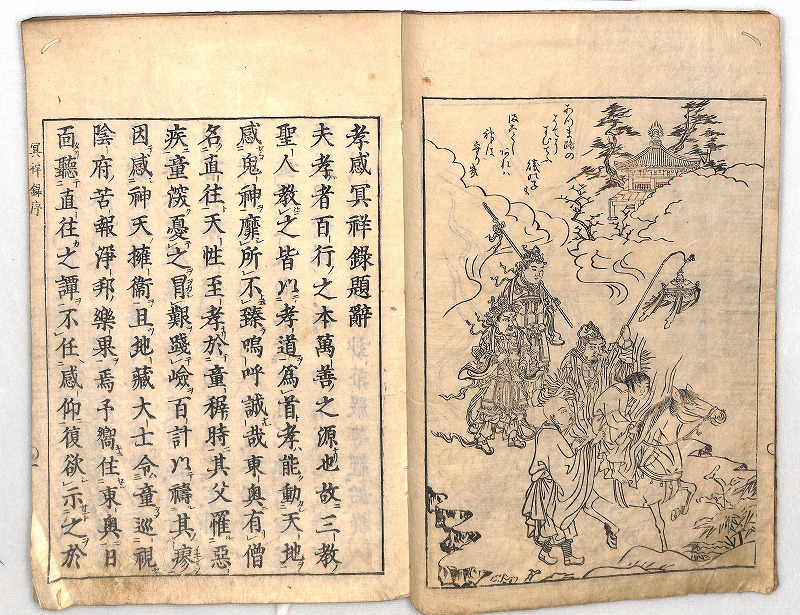 孝感冥祥録題辭
夫孝者百行之本萬善之源也故三教
聖人教之皆以孝道爲首孝能動天地
感鬼神靡所不臻嗚呼誠哉東奥有僧
名直往天性至孝於童穉時其父罹惡
疾童深憂之冒艱踐嶮百計以禱其瘳
因感神天擁衞且地藏大士令童巡視
陰府苦報淨邦樂果焉予嚮住東奥日
面聽直往之譚不任感仰復欲示之於
冥祥録序